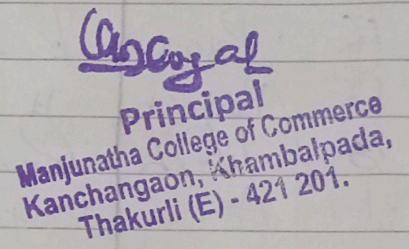 Principal
Manjunatha College of Commerce
Kanchangaon, Khambalpada,
Thakurli (E) - 421 201.